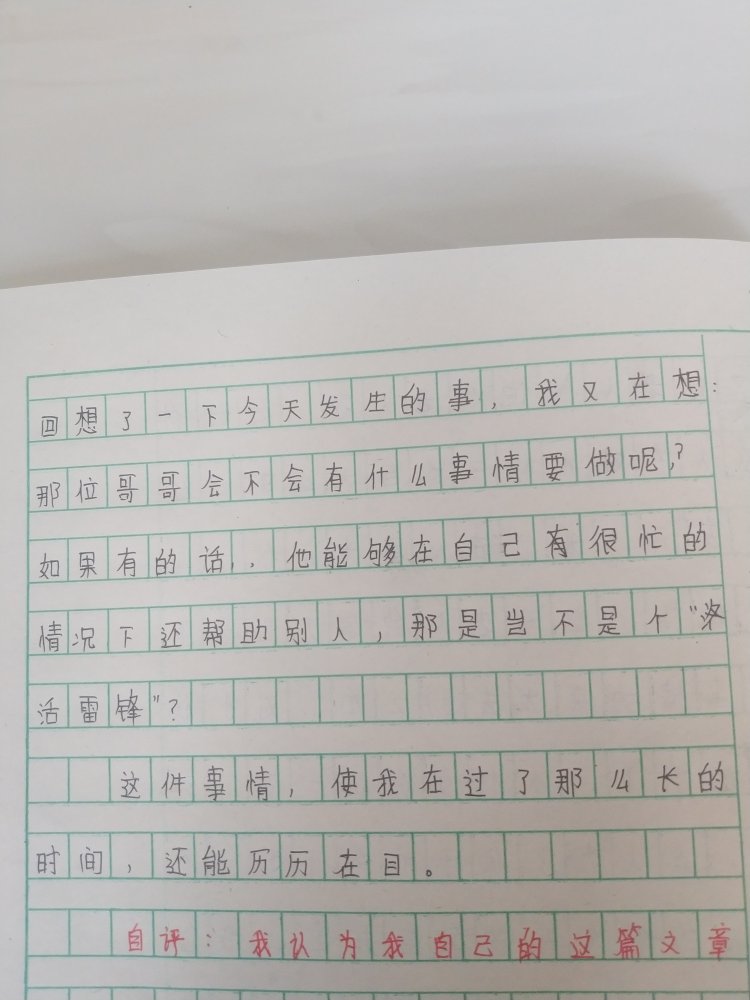 回想了一下今天发生的事，我又在想：
那位哥哥会不会有什么事情要做呢，？
如果有的话，，他能够在自己有很忙的
情况下还帮助别人，那是岂不是个“
活雷锋”？
这件事情，使我在过了那么长的
时间，还能历历在目。
自评：我认为我自己的这篇文章